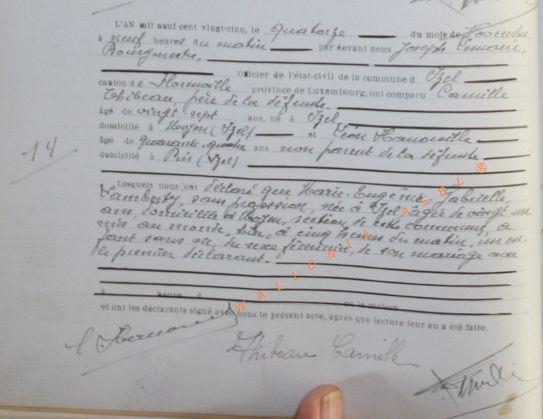 L'AN mil neuf cent vingt-cinq, le quatorze du mois de Novembre
à neuf heures du matin par devant nous Joseph
Bourgmestre,
Officier de l'état-civil de la commune d'Izel
canton de Florenville province de Luxembourg, ont comparu Camille
Thibeau, père de la défunte
âgé de vingt sept ans, né à Izel
domicilié à Moyen (Izel) et Léon
âgé de quarante-quatre ans non parent de la défunte
domicilié à Pin (Izel)
14
Lesquels nous ont déclaré que Marie-Eugénie, Gabrielle,
Lambert, sans profession, née à Izel âgée de vingt-un
ans, domiciliée à Moyen, section de cette commune, a
mis au monde, hier, à cinq heures du matin, un en-
fant sans vie, du sexe féminin, de son mariage avec
le premier déclarant.
à heure d en la maison
et ont les déclarants signé avec nous le présent acte, après que lecture leur en a été faite.
Thibeau Camille
WALLONIA ASBL ©